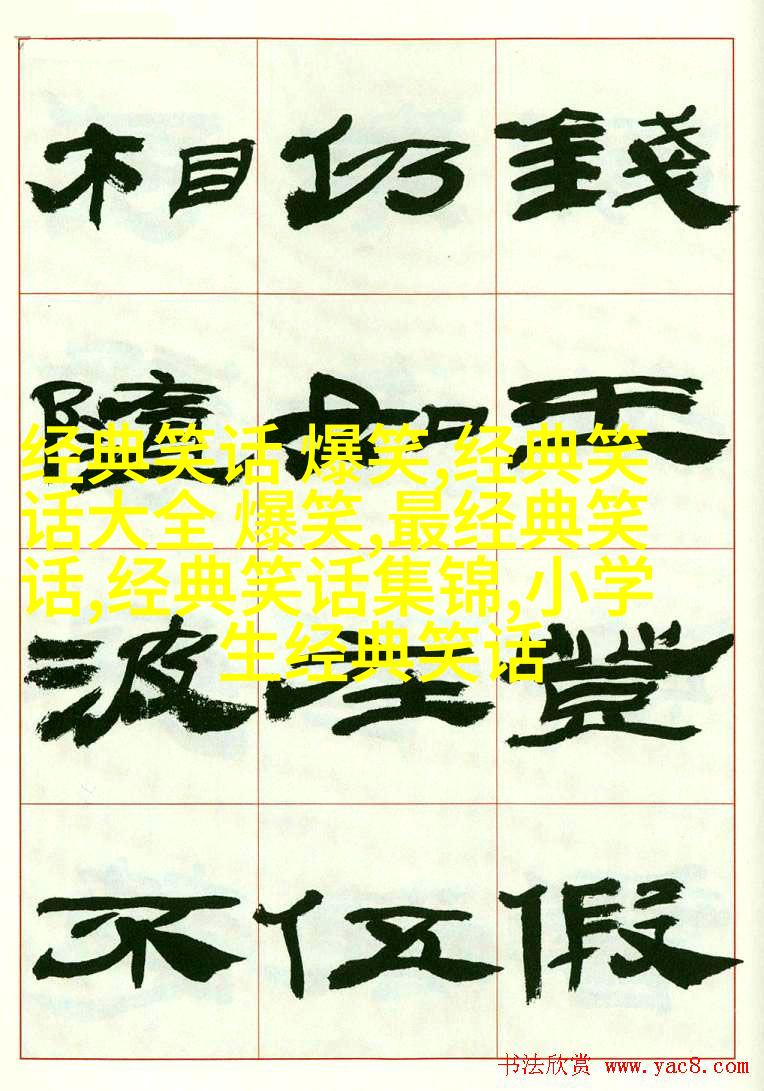 錢豈假
仍加伍
相波不
经典笑话 爆笑,经典笑
话大全 爆笑,最经典笑
话,经典笑话集锦,小学
生经典笑话
书法欣赏 www.yac8.com